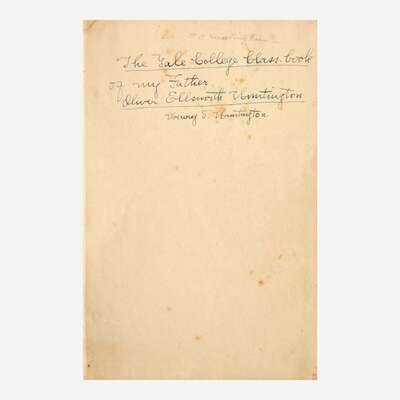 The Yale College Class-book
of my Father
Oliver Ellsworth Huntington
Huntington